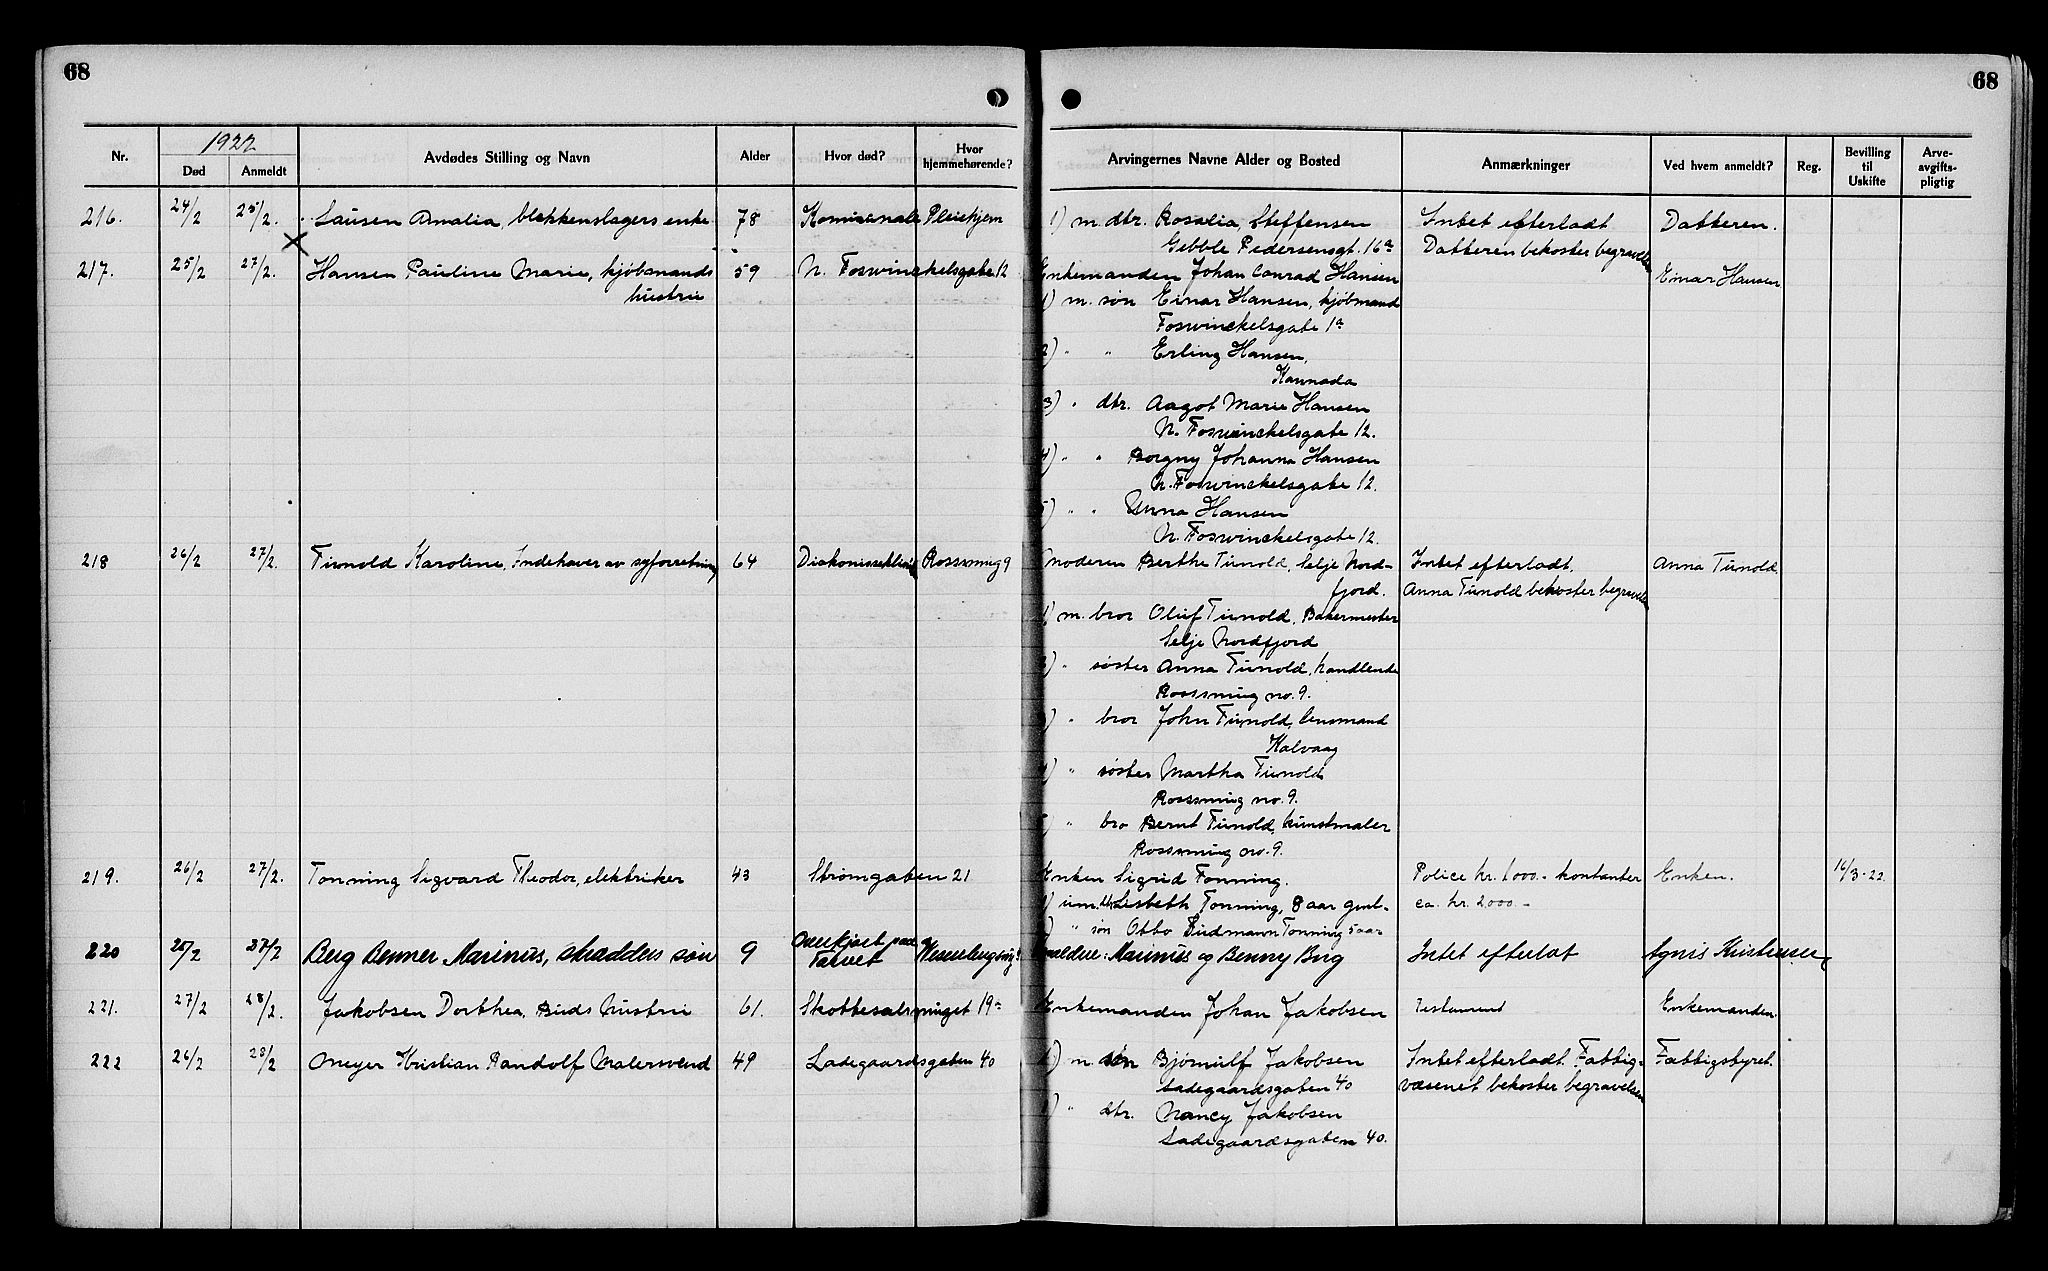 68
68
Nr.
1922
Død
Anmeldt
Avdødes Stilling og Navn
Alder
Hvor død?
Hvor hjemmehørende?
Arvingernes Navne Alder og Bosted
Anmærkninger
Ved hvem anmeldt?
Reg.
Bevilling til Uskifte
Arve-avgifts-pligtig
216. 24/2 25/2. Lausen Amalia, blekkenslagers enke 78 Komunale Pleiehjem 1) m. dtr. Rosalia Steffensen Intet efterladt Datteren.
Gebble Pedersensgt. 16a Datteren bekoster begravelsen
217. 25/2 27/2. Hansen Pauline Marie, kjøbmands 59 N. Foswinckelsgate 12 Enkemanden Johan Conrad Hansen Einar Hansen
hustru 1) m. søn Einar Hansen, kjøbmand
Foswinckelsgate 1a
2) " " Erling Hansen,
Kannada
3) " dtr. Aagot Marie Hansen
N. Foswinckelsgate 12.
4) " " Borgny Johanna Hansen
N. Foswinckelsgate 12.
5) " " Unna Hansen
N. Foswinckelsgate 12.
218 26/2 27/2. Tunold Karoline, Indehaver av syforretning 64 Diakonisseklinik Rosesmug 9 Moderen Berthe Tunold, Selje Nord- Intet efterladt. Anna Tunold.
fjord. Anna Tunold bekoster begravelsen
1) m. bror Oluf Tunold, Bakermester
Selje Nordfjord
2) " søster Anna Tunold, handlende
Rosesmug no. 9.
3) " bror John Tunold, lensmand
Kalvaag
4) " søster Martha Tunold
Rosesmug no. 9.
5) " bro Bernt Tunold, kunstmaler
Rosesmug no. 9.
219. 26/2 27/2. Tonning Sigvard Theodor, elektriker 43 Strømgaten 21 Enken Sigrid Tonning. Police kr. 1000.- kontanter Enken. 16/3-22.
1) um. dtr. Lisbeth Tonning, 8 aar gml- ca. kr. 2000.-
2) " søn Otto Budmann Tonning 5 aar
220 25/2 27/2 Berg Benner Marinius, skredders søn 9 Overkjørt paa Torvet Forældre: Marinius og Benny Berg Intet efterlat Agnis Kristensen
221. 27/2 28/2. Jakobsen Dorthea, Buds hustru 61. Skottesalsmuget 19a Enkemanden Johan Jakobsen Testament Enkemanden.
222 26/2 28/2 Meyer Kristian Randolf Malersvend 49 Ladegaardsgaten 40 1) m søn Bjørnulf Jakobsen Intet efterladt. Fattig- Fattigstyret.
Ladegaardsgaten 40 væsenet bekoster begravelsen
2) " dtr. Nancy Jakobsen
Ladegaardsgaten 40.